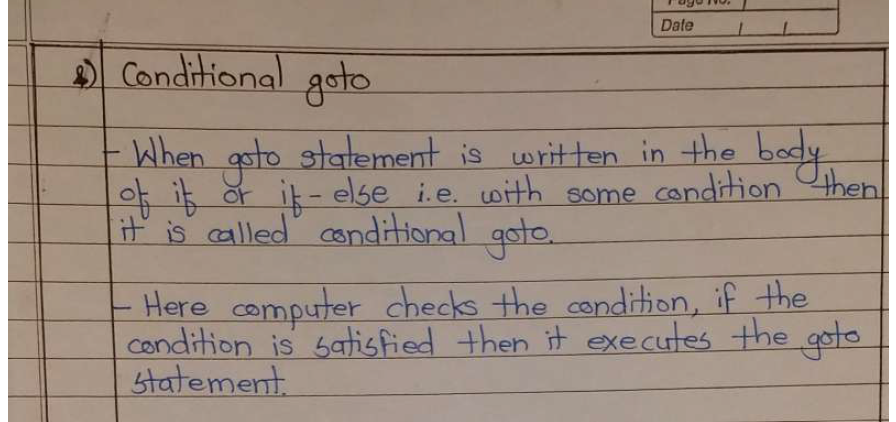 Page No.
Date / /
2) Conditional goto
- When goto statement is written in the body
of if or if-else i.e. with some condition then
it is called conditional goto.
- Here computer checks the condition, if the
condition is satisfied then it executes the goto
statement.